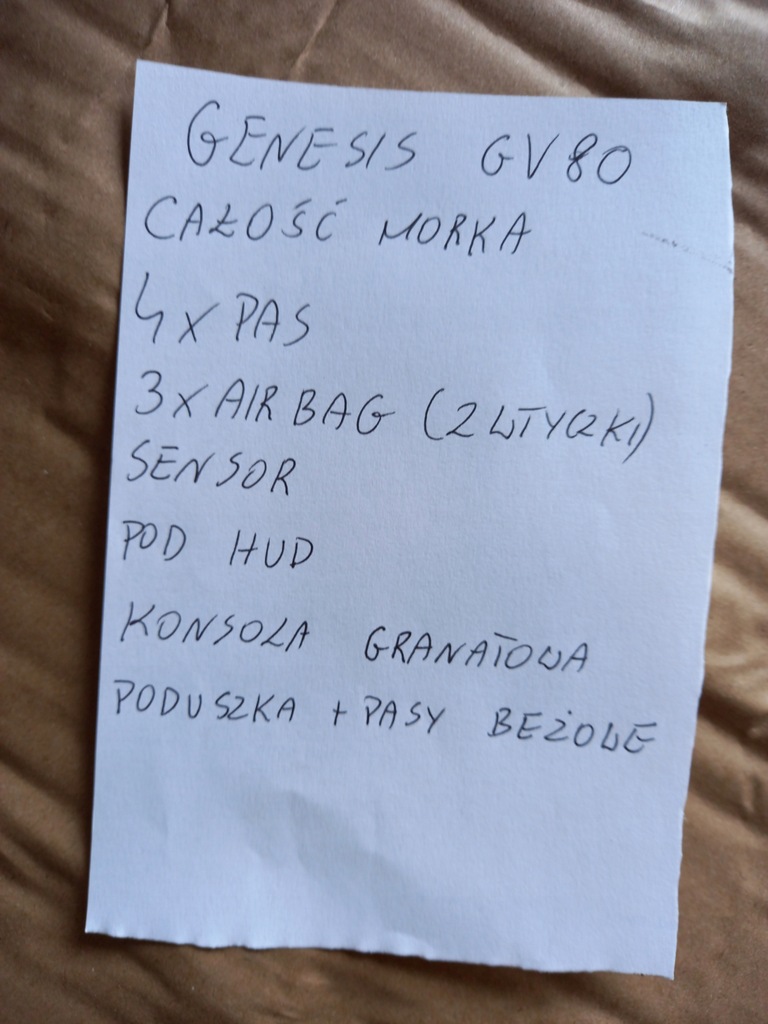 GENESIS GV80
CAŁOŚĆ MORKA
4x PAS
3x AIRBAG (2 WTYCZKI)
SENSOR
POD HUD
KONSOLA GRANATOWA
PODUSZKA + PASY BEŻOWE